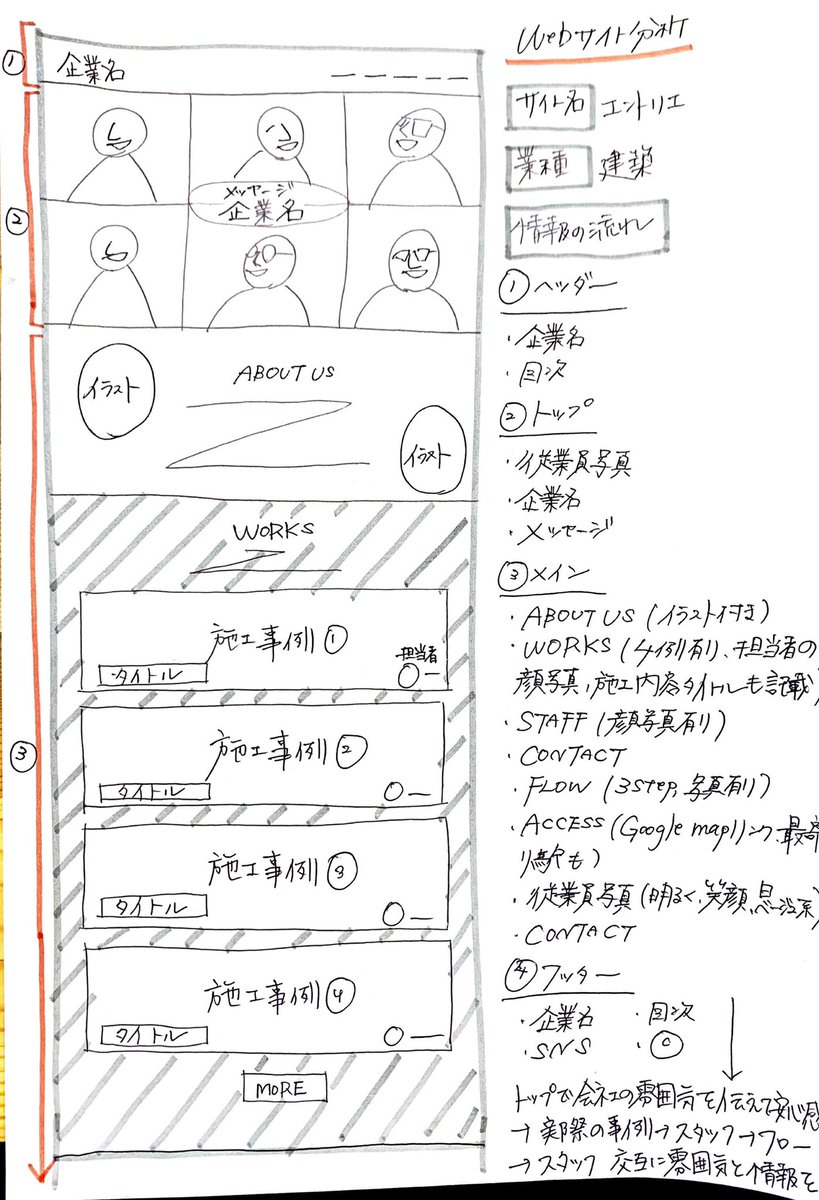 Webサイト分析
サイト名 エントリエ
業種 建築
情報の流れ
① ヘッダー
・企業名
・目次
② トップ
・従業員写真
・企業名
・メッセージ
③ メイン
・ABOUT US (イラスト付き)
・WORKS (4例有り、担当者の
顔写真、施工内容タイトルも記載)
・STAFF (顔写真有り)
・CONTACT
・FLOW (3step, 写真有り)
・ACCESS (Google mapリンク、最寄
り駅も)
・従業員写真 (明るく、笑顔、
・CONTACT
④ フッター
・企業名 ・目次
・SNS ・©
トップで会社の雰囲気を伝えて安心感
→ 実際の事例→スタッフ→フロー
→スタッフ 交互に雰囲気と情報を
①
企業名
②
メッセージ
企業名
イラスト
ABOUT US
イラスト
③
WORKS
施工事例①
担当者
タイトル
施工事例②
タイトル
施工事例③
タイトル
施工事例④
タイトル
MORE